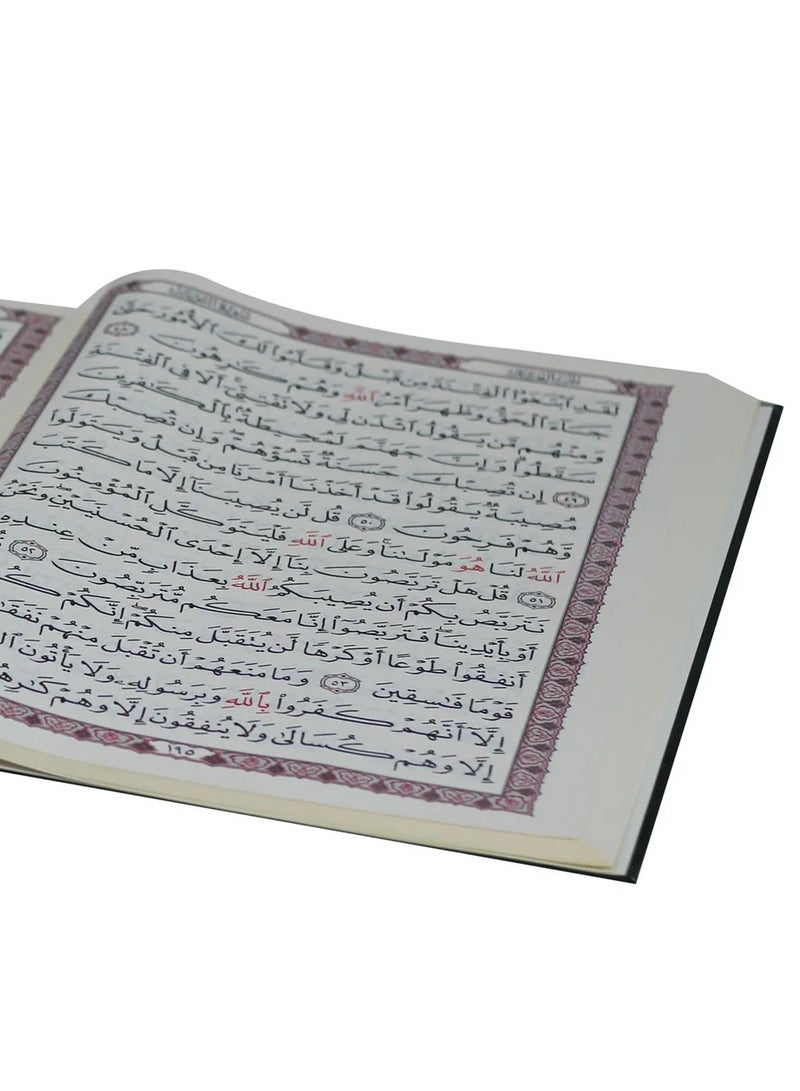 لَقَدِ ٱبْتَغَوُا۟ ٱلْفِتْنَةَ مِن قَبْلُ وَقَلَّبُوا۟ لَكَ ٱلْأُمُورَ حَتَّىٰ
جَآءَ ٱلْحَقُّ وَظَهَرَ أَمْرُ ٱللَّهِ وَهُمْ كَـٰرِهُونَ ٤٨
وَمِنْهُم مَّن يَقُولُ ٱئْذَن لِّى وَلَا تَفْتِنِّىٓ أَلَا فِى ٱلْفِتْنَةِ
سَقَطُوا۟ وَإِنَّ جَهَنَّمَ لَمُحِيطَةٌۢ بِٱلْكَـٰفِرِينَ
٤٩ إِن تُصِبْكَ حَسَنَةٌ تَسُؤْهُمْ وَإِن تُصِبْكَ
مُصِيبَةٌ يَقُولُوا۟ قَدْ أَخَذْنَآ أَمْرَنَا مِن قَبْلُ وَيَتَوَلَّوا۟
وَّهُمْ فَرِحُونَ ٥٠ قُل لَّن يُصِيبَنَآ إِلَّا مَا كَتَبَ
ٱللَّهُ لَنَا هُوَ مَوْلَىٰنَا وَعَلَى ٱللَّهِ فَلْيَتَوَكَّلِ ٱلْمُؤْمِنُونَ
٥١ قُلْ هَلْ تَرَبَّصُونَ بِنَآ إِلَّآ إِحْدَى ٱلْحُسْنَيَيْنِ وَنَحْنُ
نَتَرَبَّصُ بِكُمْ أَن يُصِيبَكُمُ ٱللَّهُ بِعَذَابٍ مِّنْ عِندِهِۦٓ
أَوْ بِأَيْدِينَا فَتَرَبَّصُوٓا۟ إِنَّا مَعَكُم مُّتَرَبِّصُونَ ٥٢
أَنفِقُوا۟ طَوْعًا أَوْ كَرْهًا لَّن يُتَقَبَّلَ مِنكُمْ إِنَّكُمْ
قَوْمًا فَـٰسِقِينَ ٥٣ وَمَا مَنَعَهُمْ أَن تُقْبَلَ مِنْهُمْ
إِلَّآ أَنَّهُمْ كَفَرُوا۟ بِٱللَّهِ وَبِرَسُولِهِۦ وَلَا يَأْتُونَ
إِلَّا وَهُمْ كُسَالَىٰ وَلَا يُنفِقُونَ إِلَّا وَهُمْ
١٩٥